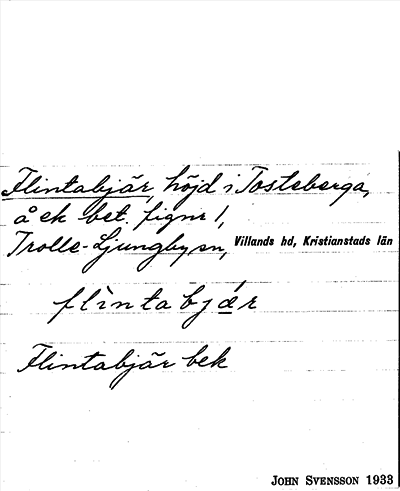 Flintabjär, höjd i Tosteberga,
å ek bet. fignr 1,
Trolle-Ljungby sn, Villands hd, Kristianstads län
flìntabjǽr
Flintabjär bek
JOHN SVENSSON 1933